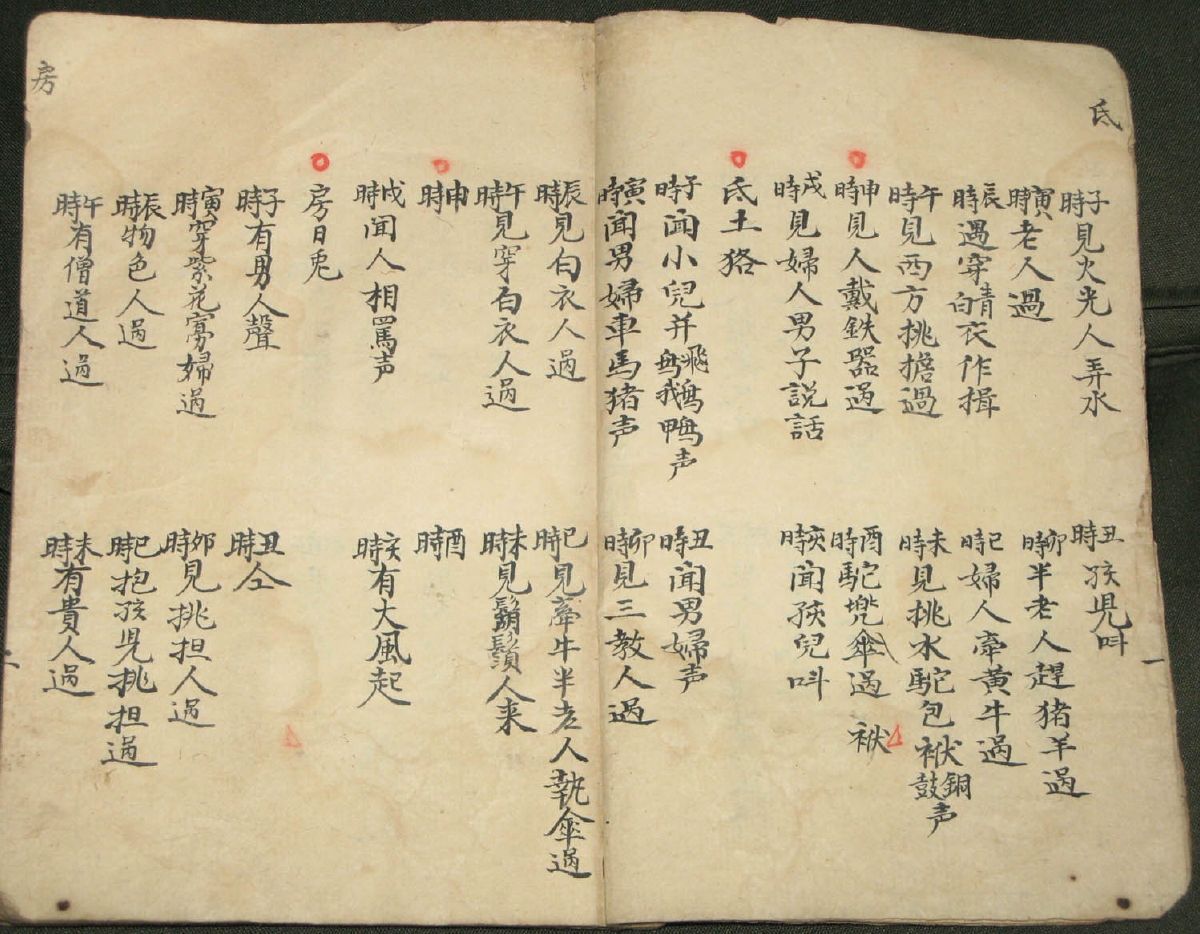 氐
子時見火光人弄水
丑時孩児叫
寅時老人過
卯時半老人趕猪羊过
辰時遇穿青白衣作揖
巳時婦人牽黄牛过
午時見西方挑擔過
未時見挑水駝包袱銅鼓声
申時見人戴鉄器过
酉時駝兠傘过
袱
戌時見婦人男子説話
亥時闻孩兒叫
氐土狢
子時闻小兒并飛鵝鴨声
丑時闻男婦声
寅時闻男婦車馬猪声
卯時見三教人过
辰時見白衣人过
巳時見牽牛半老人執傘过
午時見穿白衣人过
未時見鬍鬚人来
申時
酉時
戌時闻人相罵声
亥時有大風起
房日兎
子時有男人聲
丑時仝
寅時穿紫花寡婦过
卯時見挑担人过
辰時物色人过
巳時抱孩児挑担过
午時有僧道人过
未時有貴人过
房
一
二